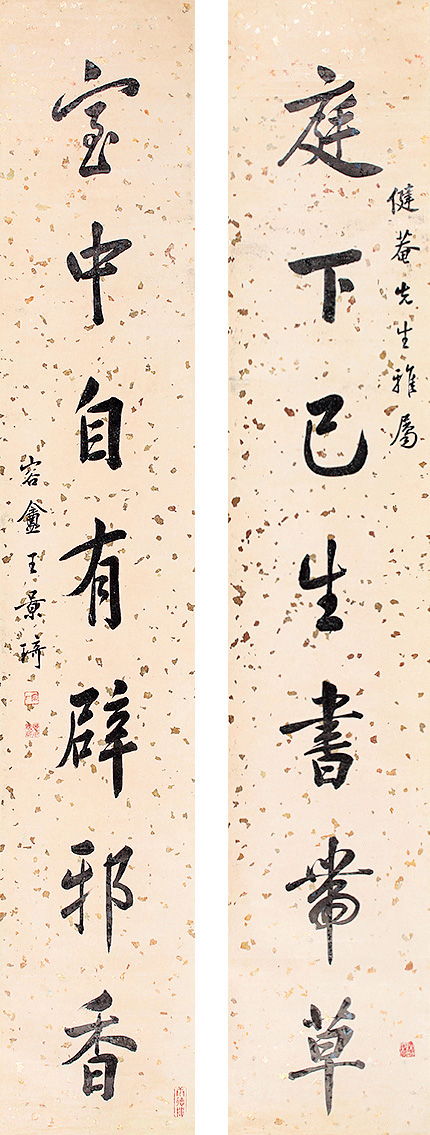 健菴先生雅屬
庭下已生書帶草
室中自有辟邪香
容盦王景琦